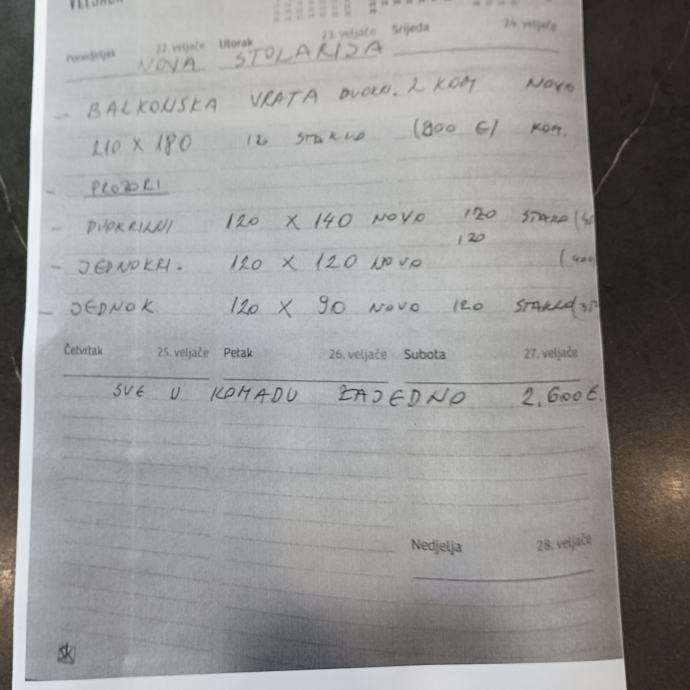 VELJAČA
Ponedjeljak 22. veljače Utorak 23. veljače Srijeda 24. veljače
NOVA STOLARIJA
- BALKONSKA VRATA DVOKR. 2 KOM NOVO
210 X 180 IZ STAKLO (800 €) KOM.
- PROZORI
- DVOKRILNI 120 X 140 NOVO IZO STAKLO
IZO
- JEDNOKRI. 120 X 120 NOVO (400
- JEDNOK. 120 X 90 NOVO IZO STAKLO
Četvrtak 25. veljače Petak 26. veljače Subota 27. veljače
SVE U KOMADU ZAJEDNO 2.600€.
Nedjelja 28. veljače
sk